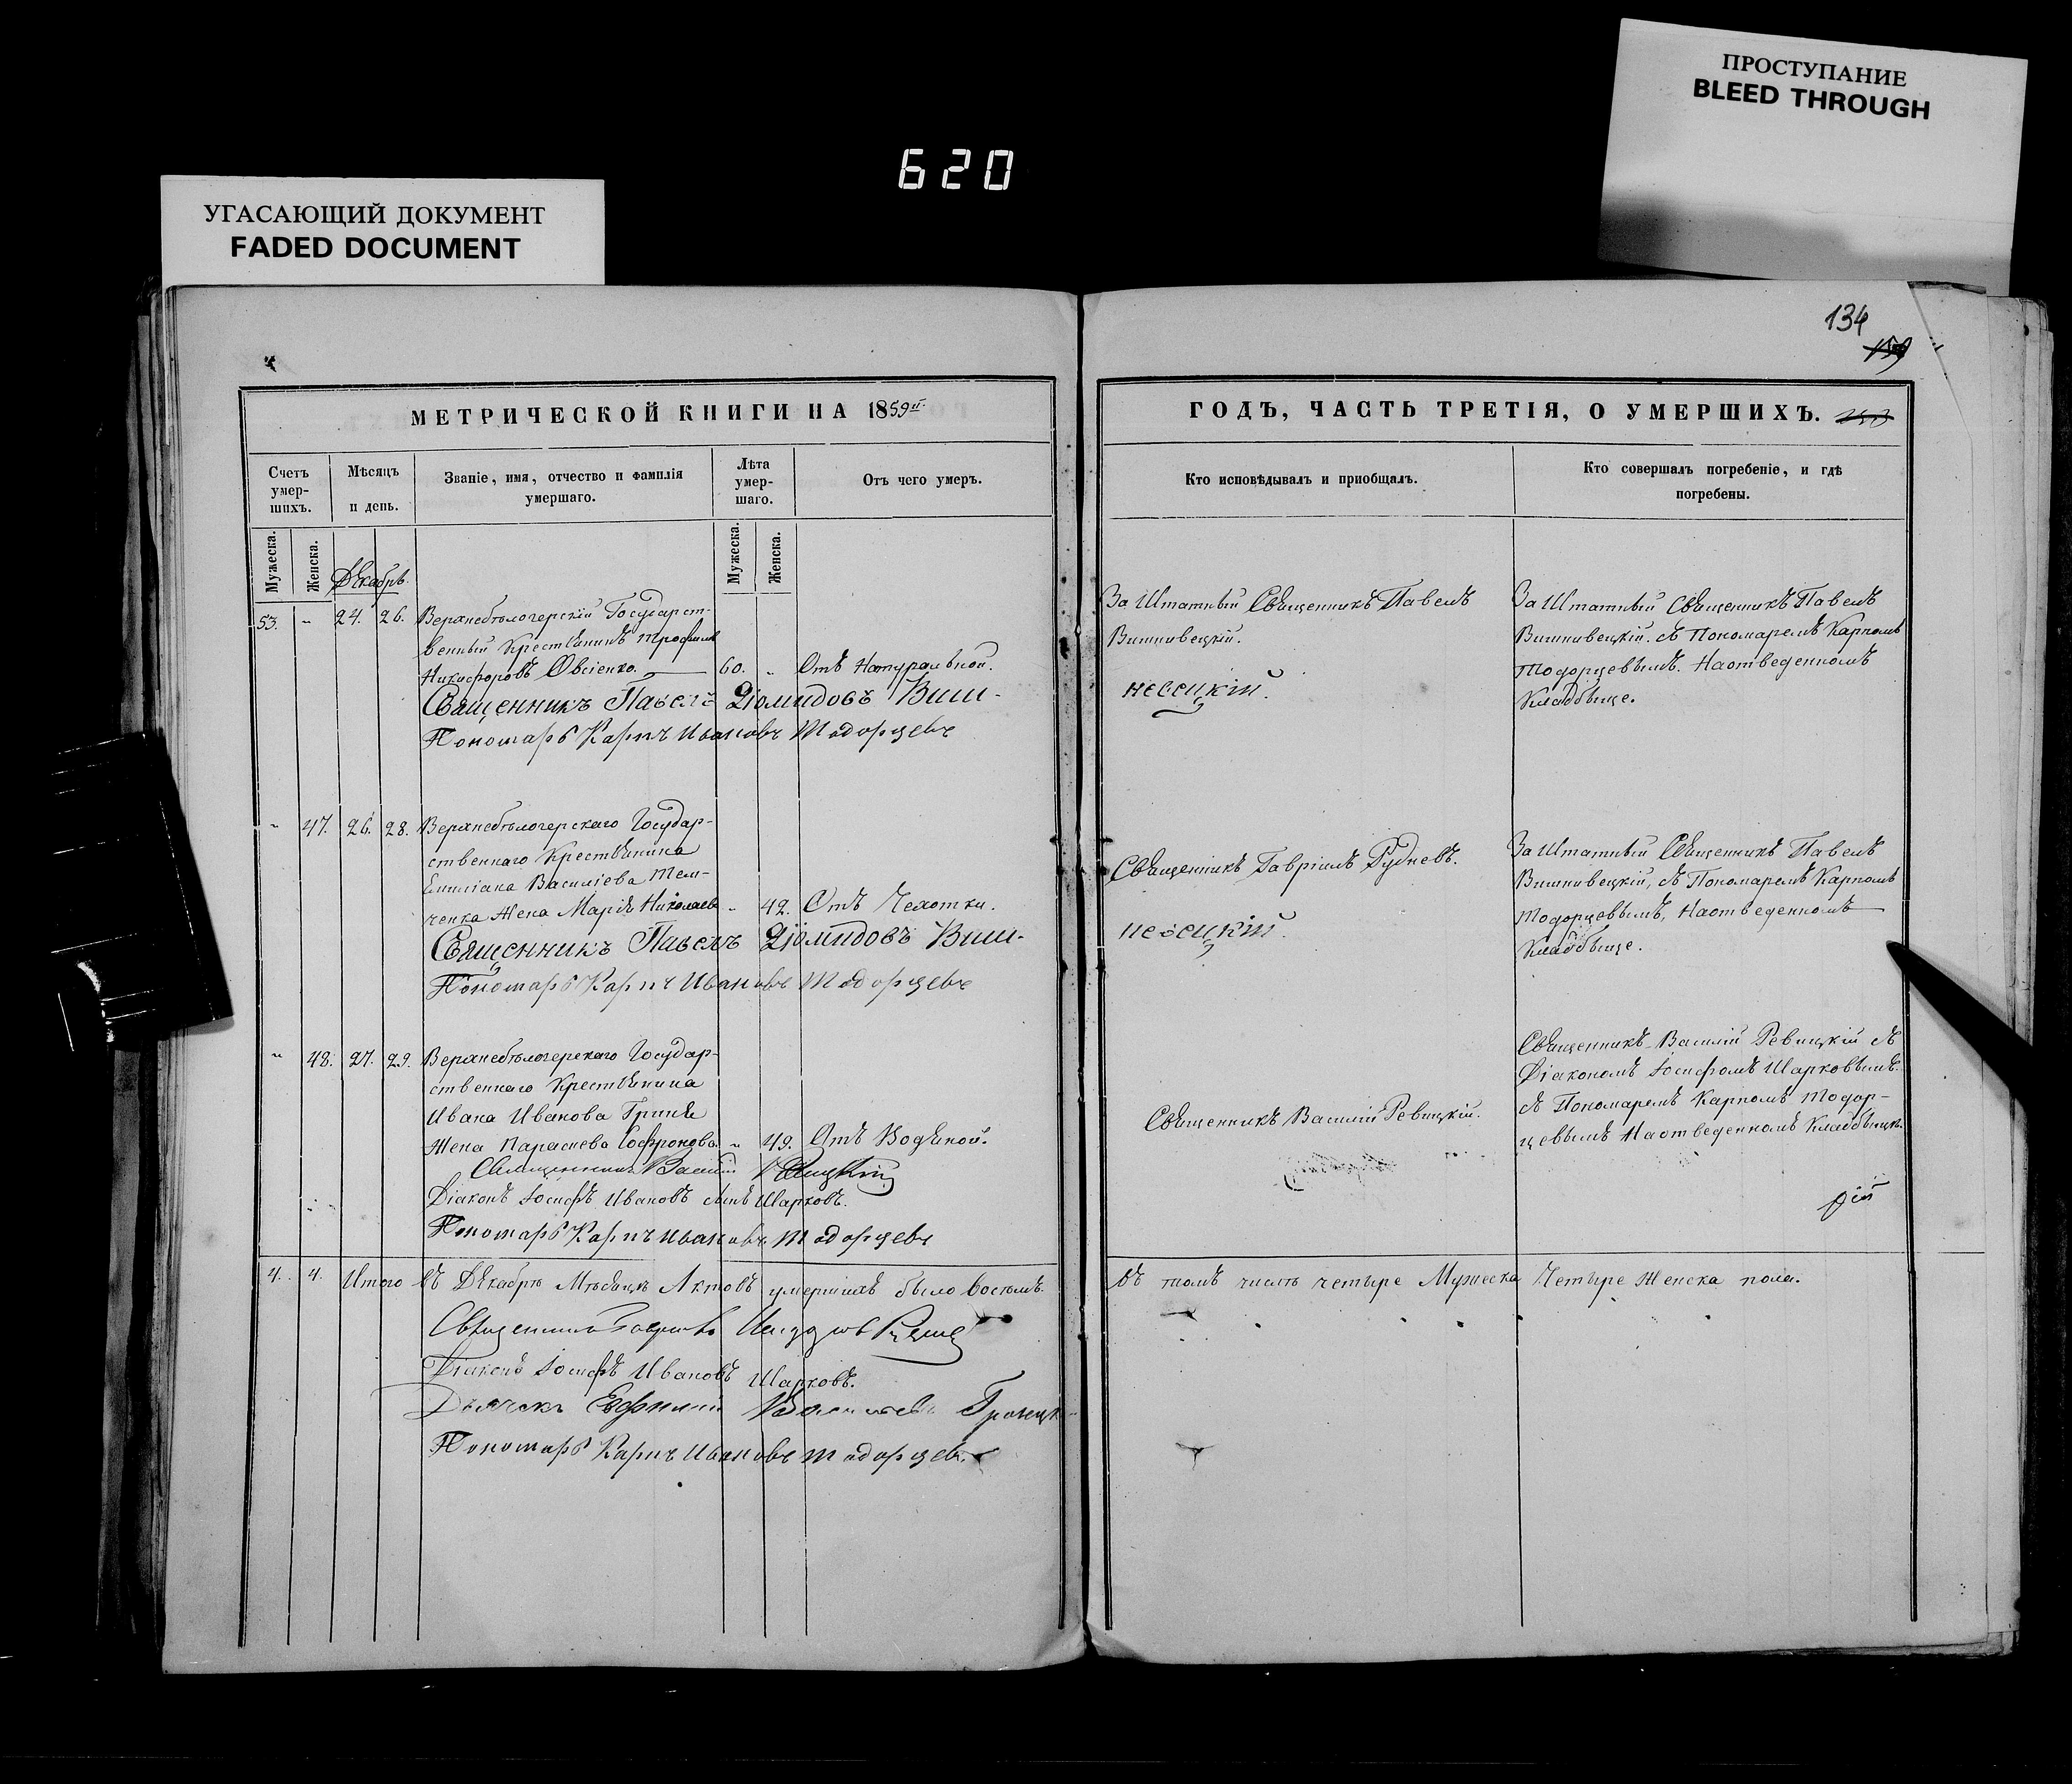 ПРОСТУПАНИЕ
BLEED THROUGH
620
УГАСАЮЩИЙ ДОКУМЕНТ
FADED DOCUMENT
134
МЕТРИЧЕСКОЙ КНИГИ НА 1859й
Счетъ умер-шихъ.
Мѣсяцъ и день.
Званіе, имя, отчество и фамилія умершаго.
Лѣта умер-шаго.
Отъ чего умеръ.
Мужеска.
Женска.
Декабрь.
Мужеска.
Женска.
53. " 24. 26. Верхнебѣлогерскій Государст-
венный Крестьянинъ Трофимъ
Никифоровъ Овсіенко. 60. " Отъ Натуральной.
Священникъ Павелъ Діомидовъ Виш-
Пономарь Карпъ Ивановъ Тодорцевъ
" 47. 26. 28. Верхнебѣлогерскаго Государ-
ственнаго Крестьянина
Емиліана Василіева Тем-
ченка Жена Марія Николаева " 42. Отъ Чехотки.
Священникъ Павелъ Діомидовъ Виш-
Пономарь Карпъ Ивановъ Тодорцевъ
" 48. 27. 29. Верхнебѣлогерскаго Государ-
ственнаго Крестьянина
Ивана Иванова Гриня
Жена Параскева Софронова. " 49. Отъ Водяной.
Священникъ Василій Ревицкій
Діаконъ Іосифъ Ивановъ Шарковъ.
Пономарь Карпъ Ивановъ Тодорцевъ
4. 4. Итого въ Декабрѣ Мѣсяцѣ Актовъ умершихъ было восѣмь.
Священникъ Гавріилъ Рудневъ
Діаконъ Іосифъ Ивановъ Шарковъ.
Дьячекъ Ефимій
Пономарь Карпъ Ивановъ Тодорцевъ
ГОДЪ, ЧАСТЬ ТРЕТІЯ, О УМЕРШИХЪ.
Кто исповѣдывалъ и приобщалъ.
Кто совершалъ погребеніе, и гдѣ погребены.
За Штатный Священникъ Павелъ
Вишнивецкій.
невецкій.
За Штатный Священникъ Павелъ
Вишнивецкій. съ Пономаремъ Карпомъ
Тодорцевымъ. На отведенномъ
Кладбище.
Священникъ Гавріилъ Рудневъ.
невецкій.
За Штатный Священникъ Павелъ
Вишнивецкій, съ Пономаремъ Карпомъ
Тодорцевымъ, На отведенномъ
Кладбище.
Священникъ Василій Ревицкій.
Священникъ Василій Ревицкій съ
Діакономъ Іосифомъ Шарковымъ.
съ Пономаремъ Карпомъ Тодор-
цевымъ На отведенномъ Кладбищѣ.
въ томъ числѣ четыре Мужеска Четыре Женска пола.